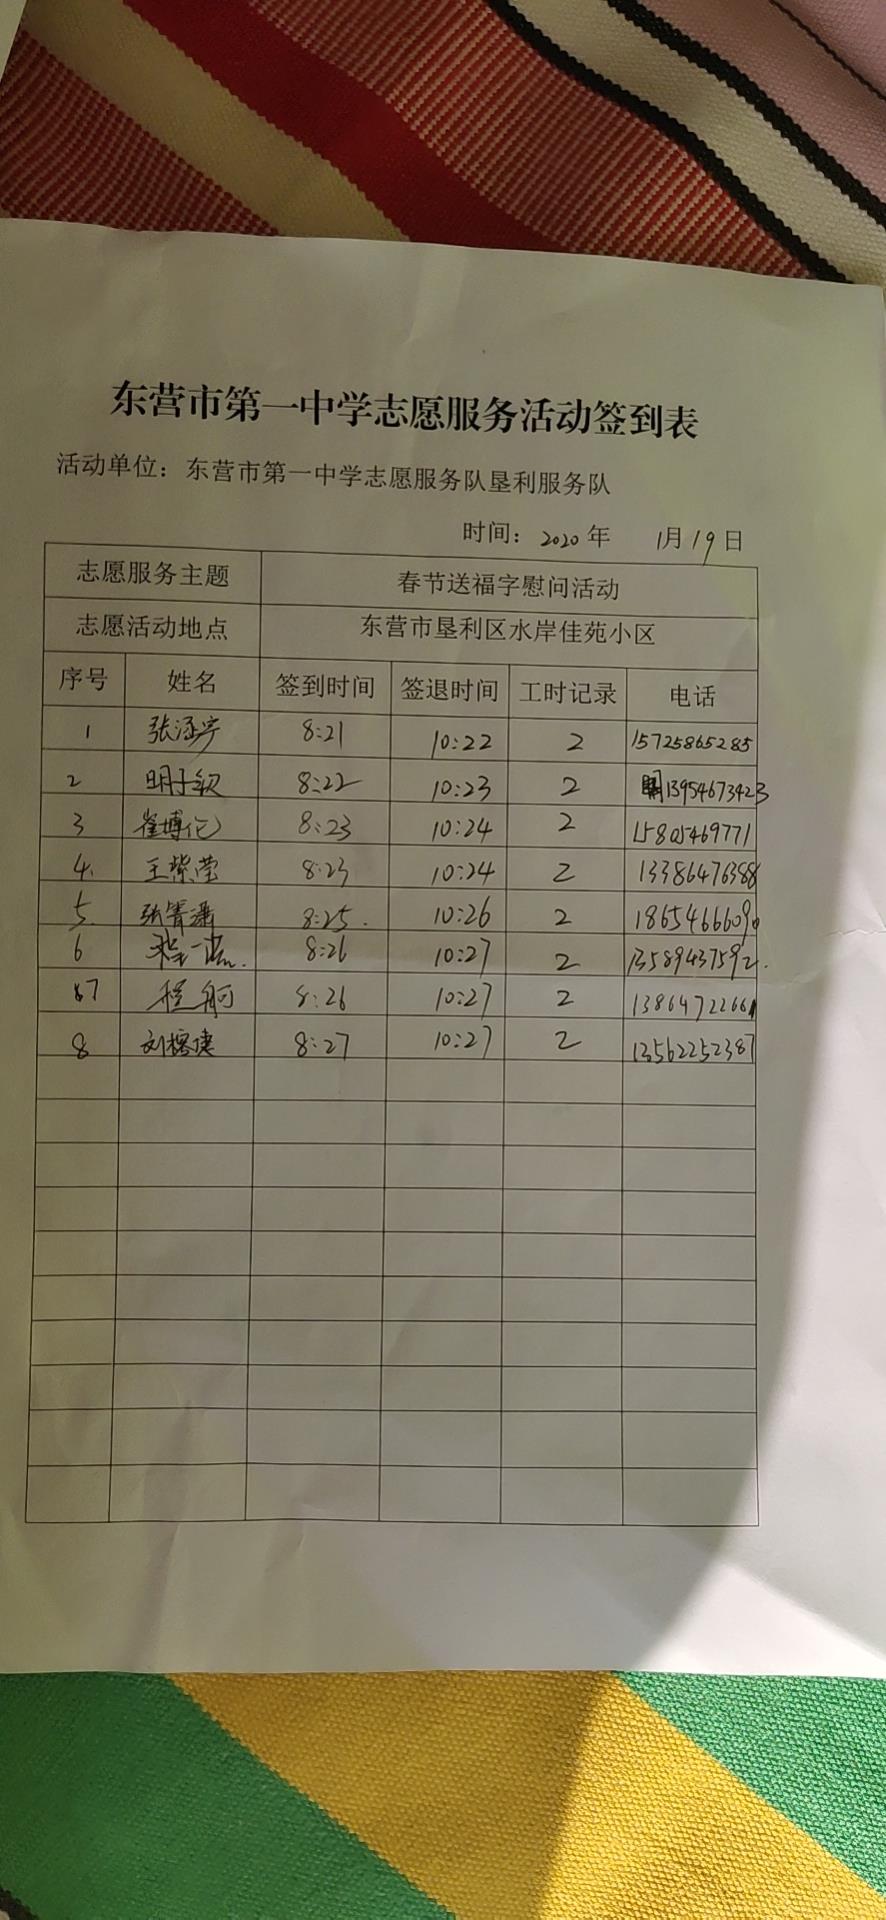 东营市第一中学志愿服务活动签到表
活动单位：东营市第一中学志愿服务队垦利服务队
时间：2020年 1月19日
志愿服务主题 春节送福字慰问活动
志愿活动地点 东营市垦利区水岸佳苑小区
序号 姓名 签到时间 签退时间 工时记录 电话
1 张涵宇 8:21 10:22 2 15725865285
2 明子钦 8:22 10:23 2 13954673423
3 崔博伦 8:23 10:24 2 15805469771
4. 王紫莹 8:23 10:24 2 13386476388
5. 张箐潇 8:25. 10:26 2 18654666090
6 8:26 10:27 2 13589437592.
7 程舸 8:26 10:27 2 13864722661
8 刘榕倢 8:27 10:27 2 13562252387